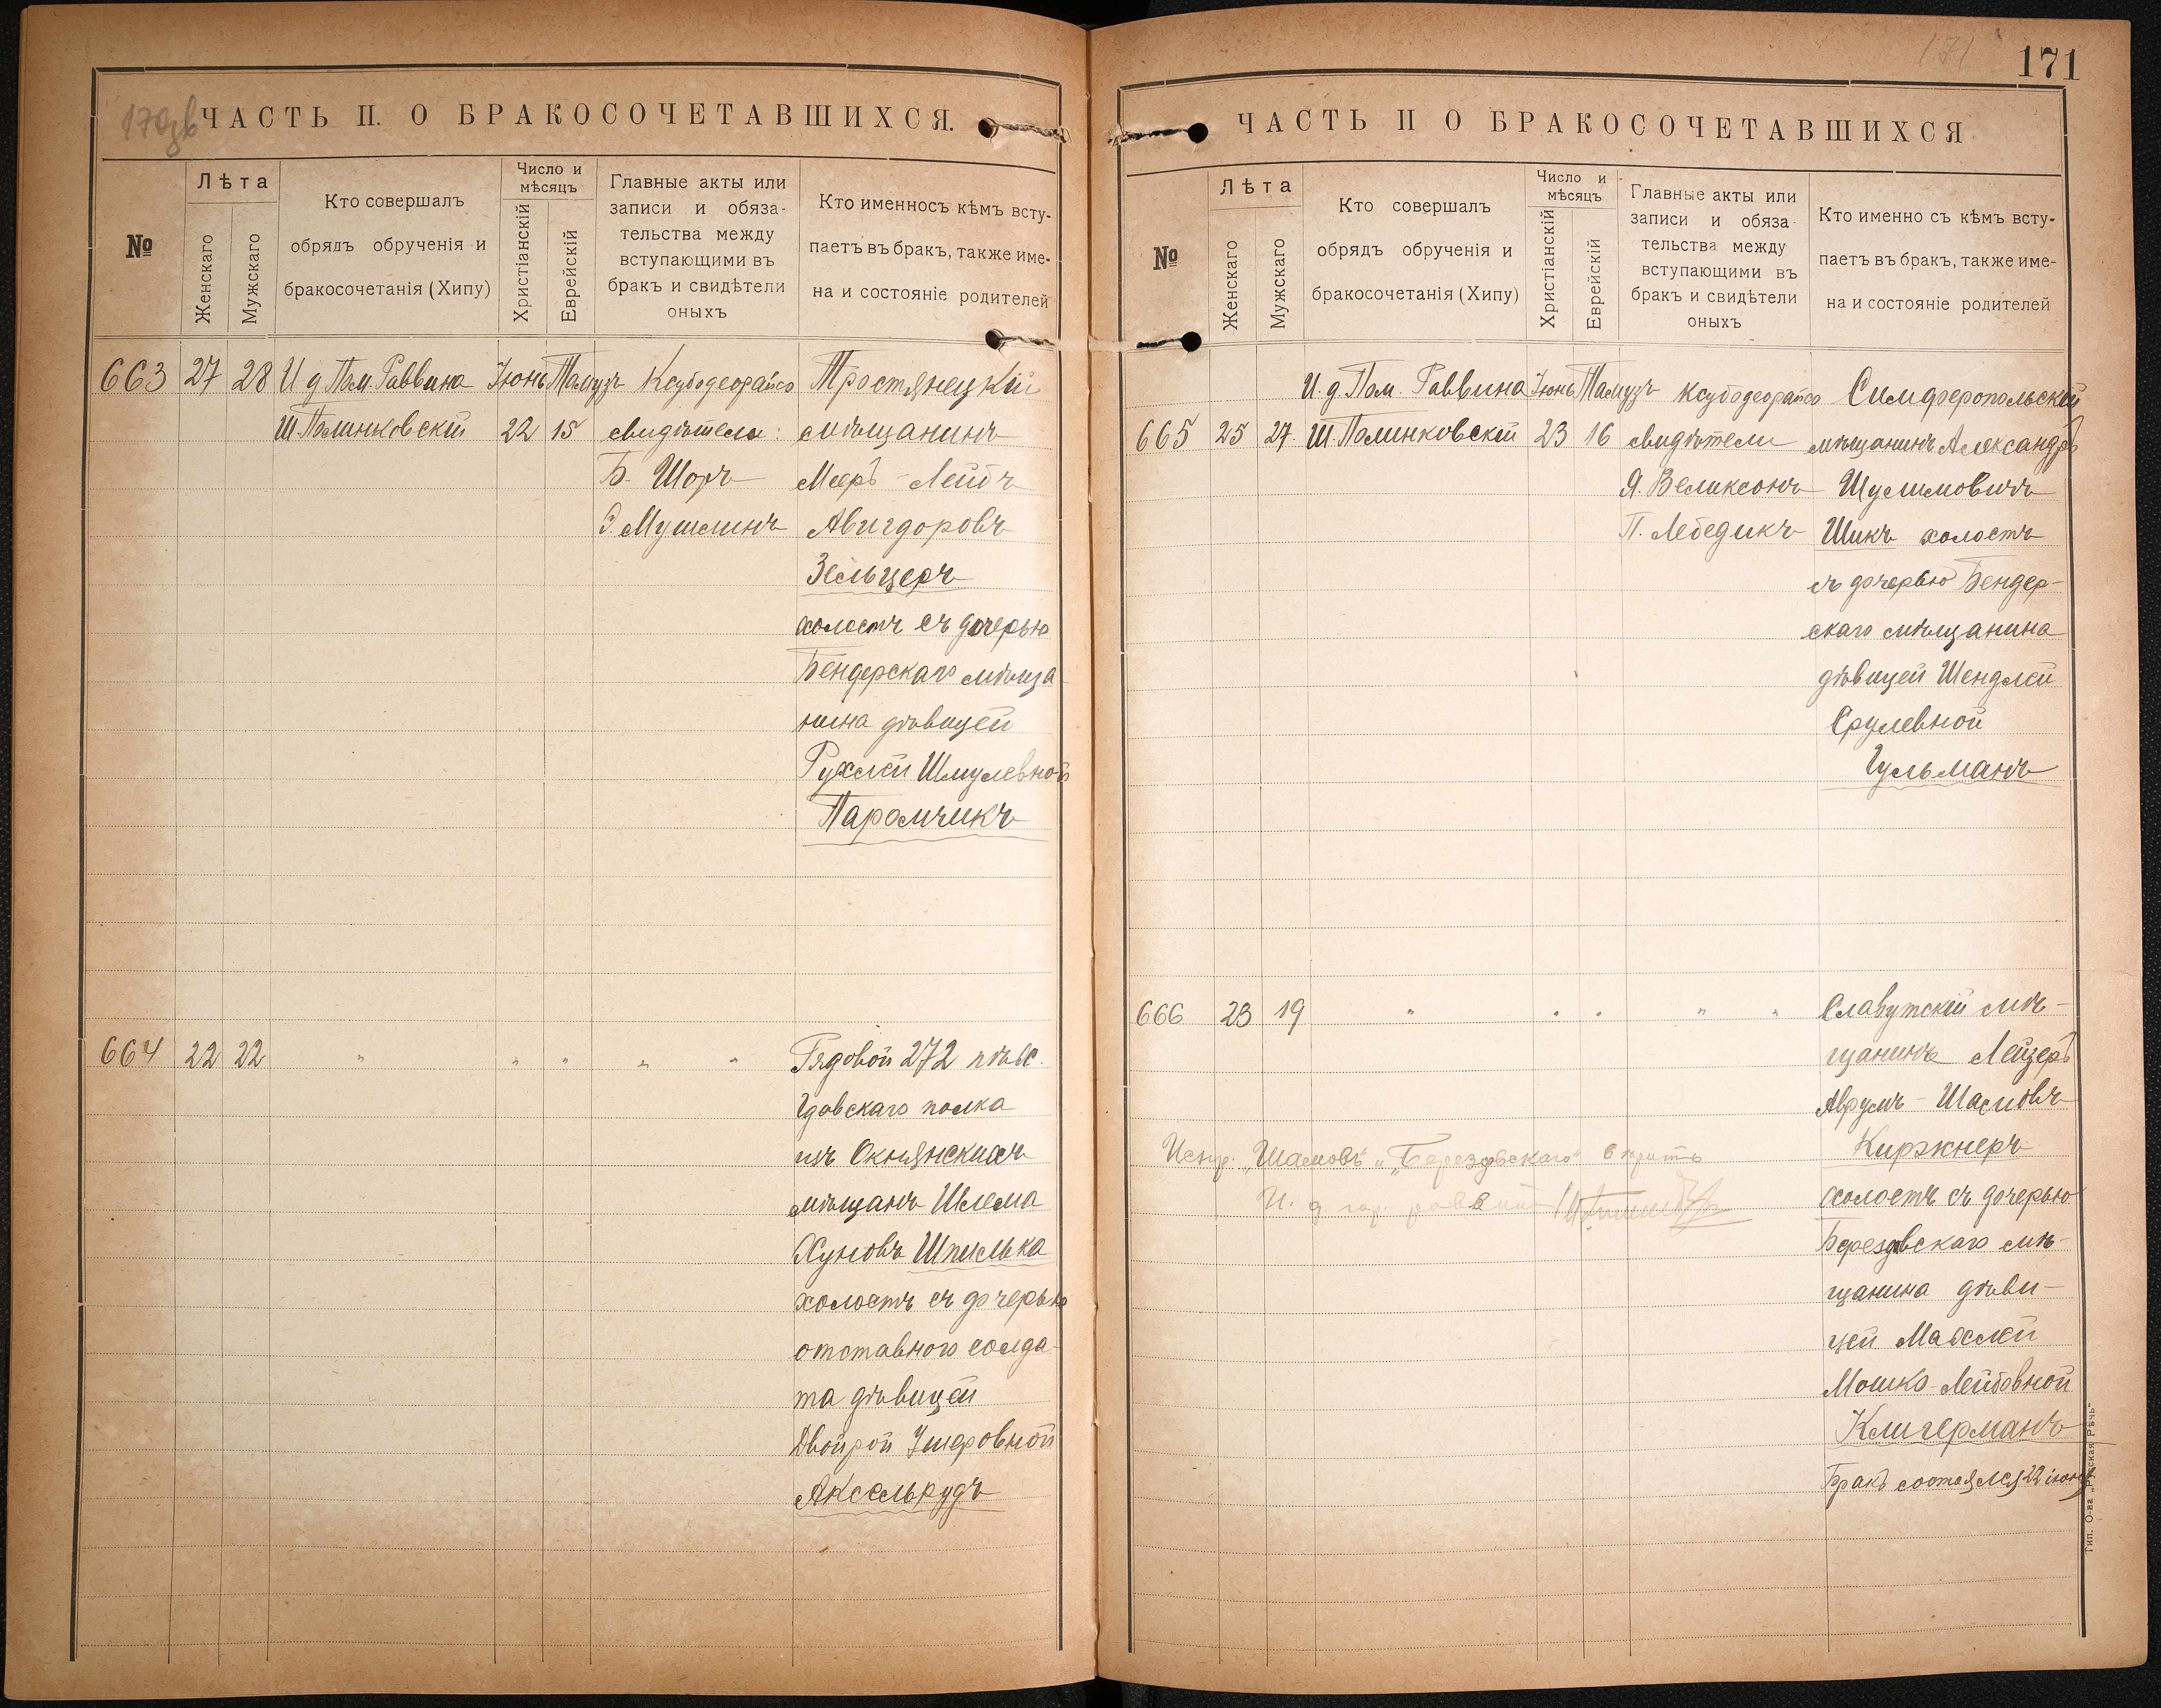 170зв
ЧАСТЬ II. О БРАКОСОЧЕТАВШИХСЯ.
№
Лѣта
Женскаго
Мужскаго
Кто совершалъ
обрядъ обрученія и
бракосочетанія (Хипу)
Число и
мѣсяцъ
Христіанскій
Еврейскій
Главные акты или
записи и обяза-
тельства между
вступающими въ
бракъ и свидѣтели
оныхъ
Кто именносъ кѣмъ всту-
паетъ въ бракъ, также име-
на и состояніе родителей
663 27 28 И д Пом. Раввина Іюнь Тамузъ Ксубодеорайсо Тростянецкій
Ш. Полинковскій 22 15 свидѣтели: мѣщанинъ
Б. Шоръ Мееръ-Лейбъ
Э. Мушлинъ Авигдоровъ
Зельцеръ
холостъ съ дочерью
Бендерскаго мѣща
нина дѣвицей
Рухлей Шмулевной
Паромчикъ
664 22 22 " " " " " Рядовой 272 пѣх.
Гдовскаго полка
изъ Окнянскихъ
мѣщанъ Шлема
Хуновъ Шпилька
холостъ съ дочерью
отставного солда-
та дѣвицей
Двойрой Ушеровной
Аксельрудъ
171
171
ЧАСТЬ II О БРАКОСОЧЕТАВШИХСЯ
№
Лѣта
Женскаго
Мужскаго
Кто совершалъ
обрядъ обрученія и
бракосочетанія (Хипу)
Число и
мѣсяцъ
Христіанскій
Еврейскій
Главные акты или
записи и обяза
тельства между
вступающими въ
бракъ и свидѣтели
оныхъ
Кто именно съ кѣмъ всту-
паетъ въ бракъ, также име-
на и состояніе родителей
И. д. Пом. Раввина Іюнь Тамузъ Ксубодеорайсо Симферопольскій
665 25 27. Ш. Полинковскій 23 16 свидѣтели мѣщанинъ Александръ
Я. Великсонъ Шулимовичъ
П. Лебедикъ Шикъ холостъ
съ дочерью Бендер-
скаго мѣщанина
дѣвицей Шендлей
Срулевной
Гульманъ
666 23 19 " " " " " Славутскій мѣ-
щанинъ Лейзеръ
Аврумъ-Шасловъ
Киржнеръ
холостъ съ дочерью
Берездовскаго мѣ-
щанина дѣви-
цей Махлей
Мошко-Лейбовной
Клигерманъ
Бракъ состоялся 22 іюня
Испр. „ „Берездовскаго" вѣрить
И. д гор. раввина
Тип. О-ва „Русская Рѣчь"